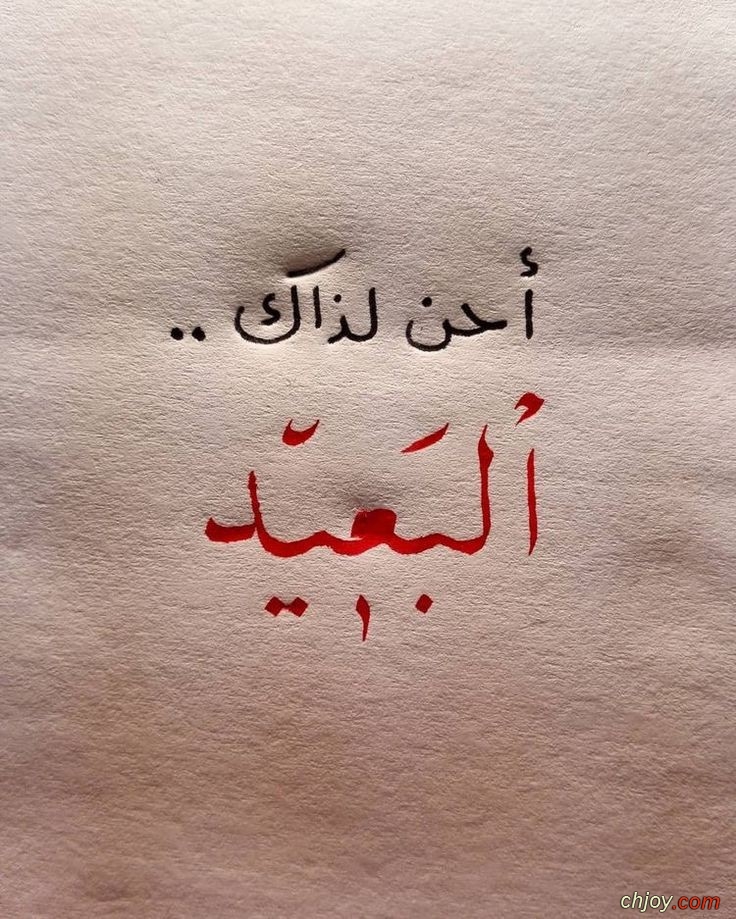 أحن لذاك ..
ألبَعيد
chjoy.com